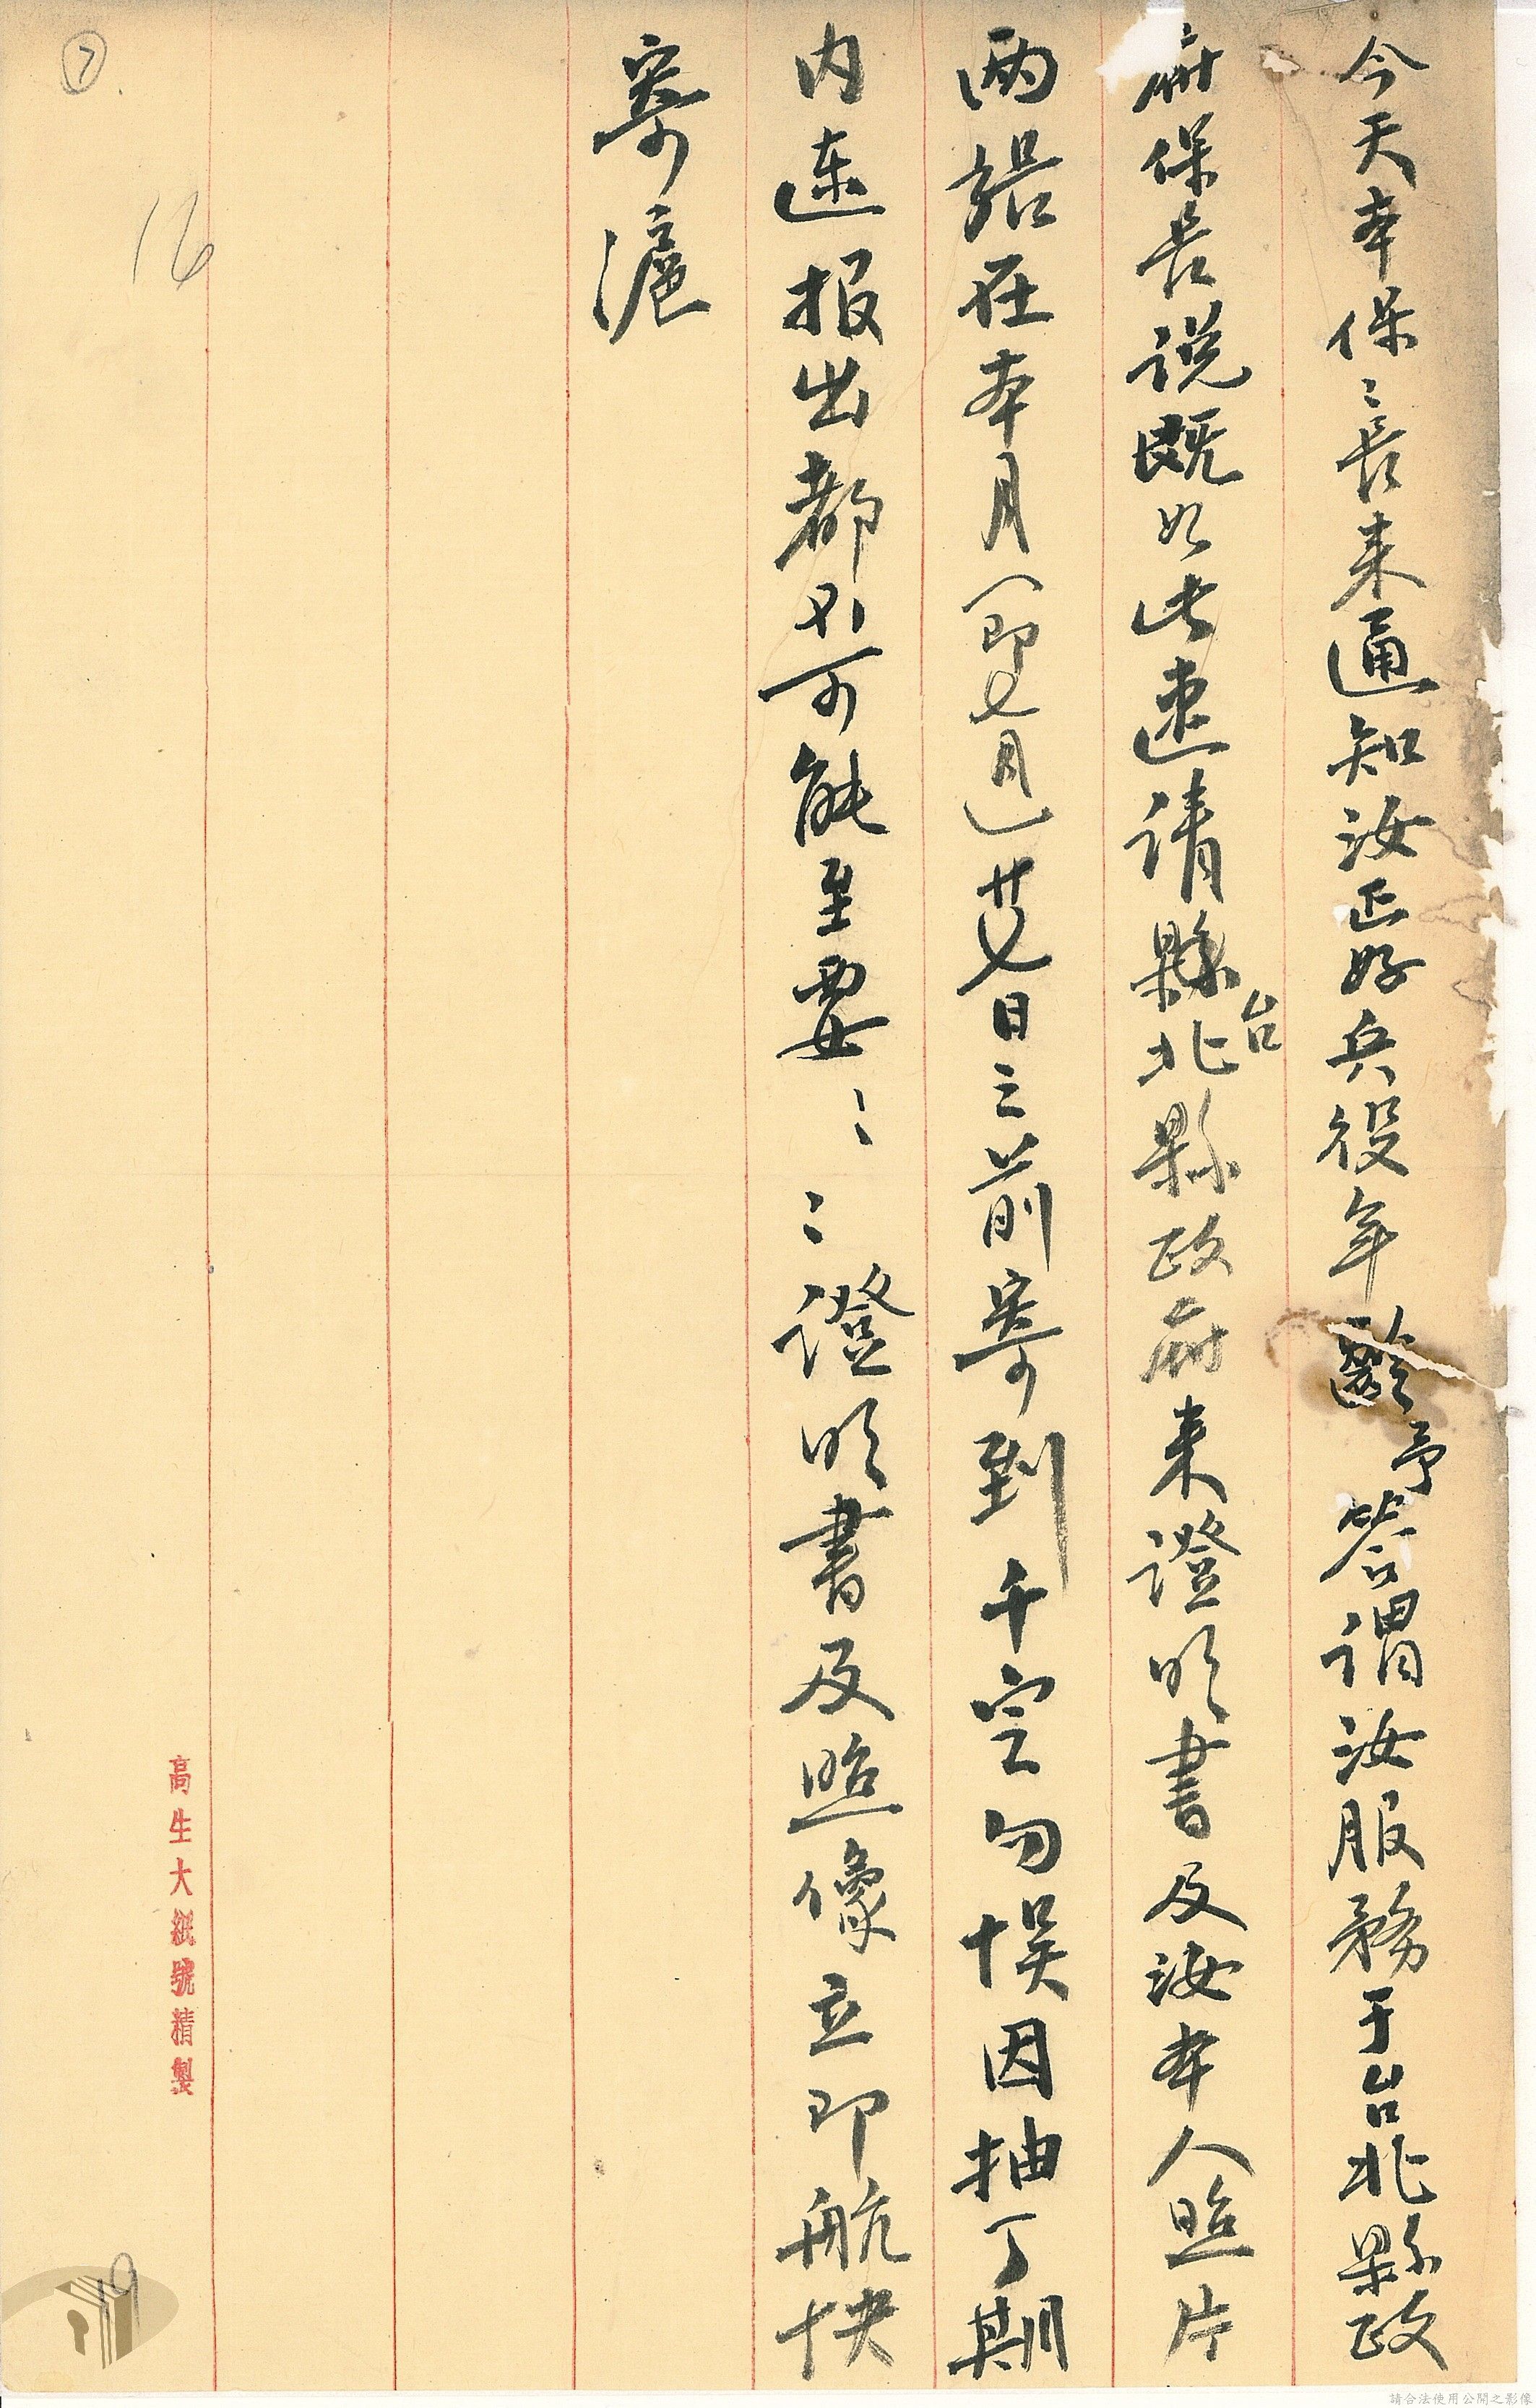 今天本保〻長来通知汝正好兵役年齡予答謂汝服務于台北縣政
府保長説既如此速請縣台北縣政府来證明書及汝本人照片
両張在本月(即七月)廿七日之前寄到千定勿悮因抽丁期
内速报出都不可能至要〻〻證明書及照像立即航快
寄滬
7
16
19
高生大紙號精製
請合法使用公開之影像